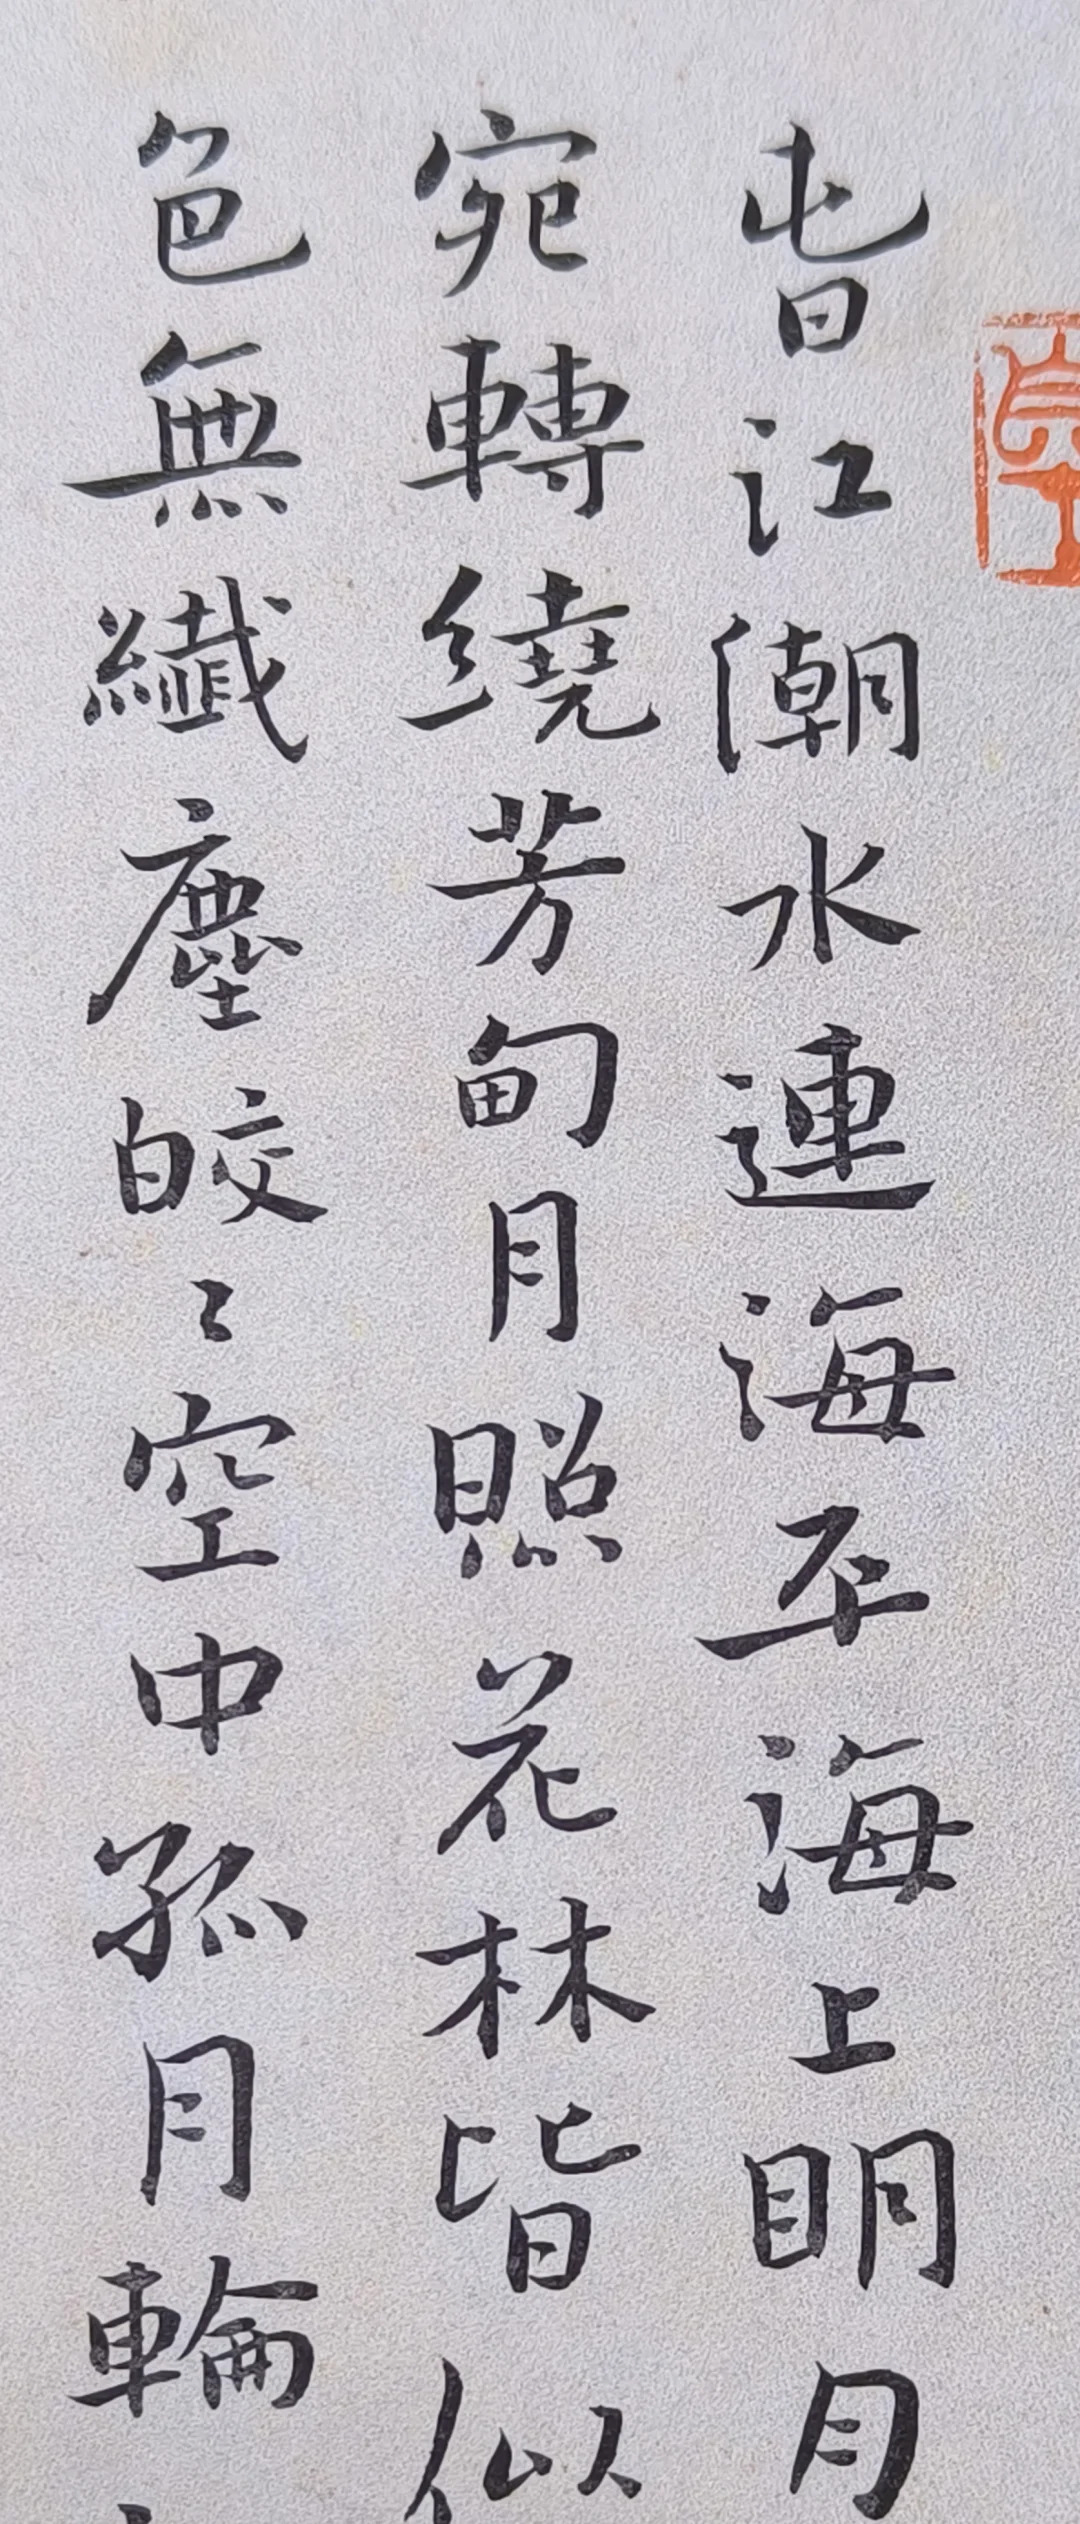 旾江潮水連海平海上明月
宛轉繞芳甸月照花林皆似
色無纖塵皎〻空中孤月輪